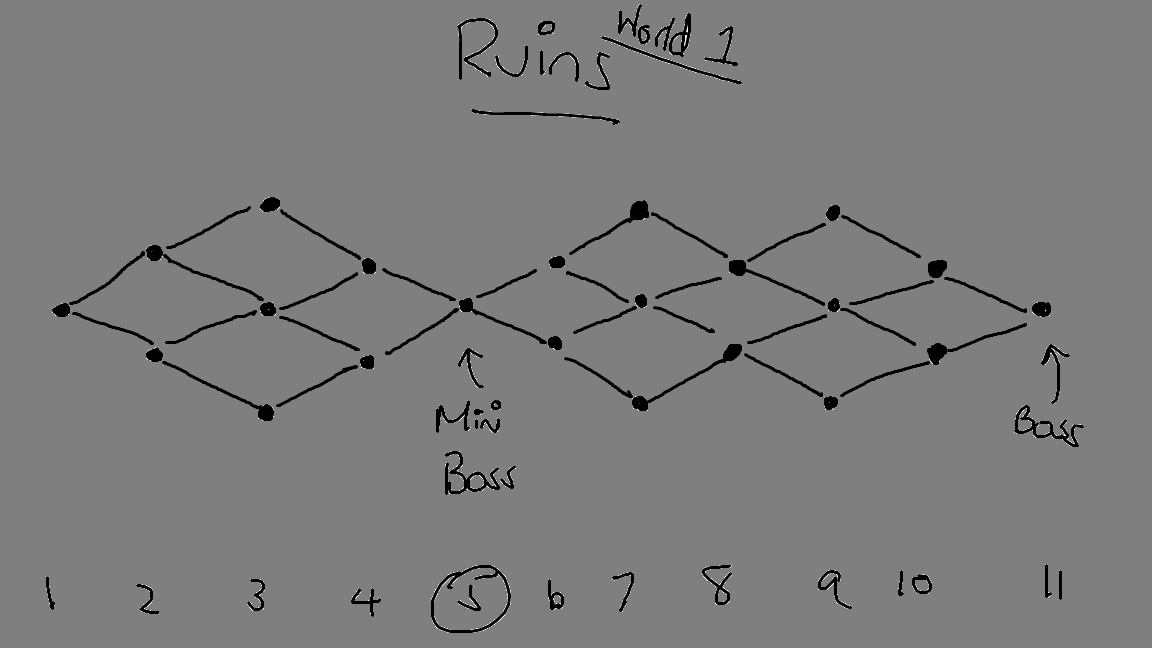 Ruins World 1
Mini
Boss
Boss
1 2 3 4 5 6 7 8 9 10 11